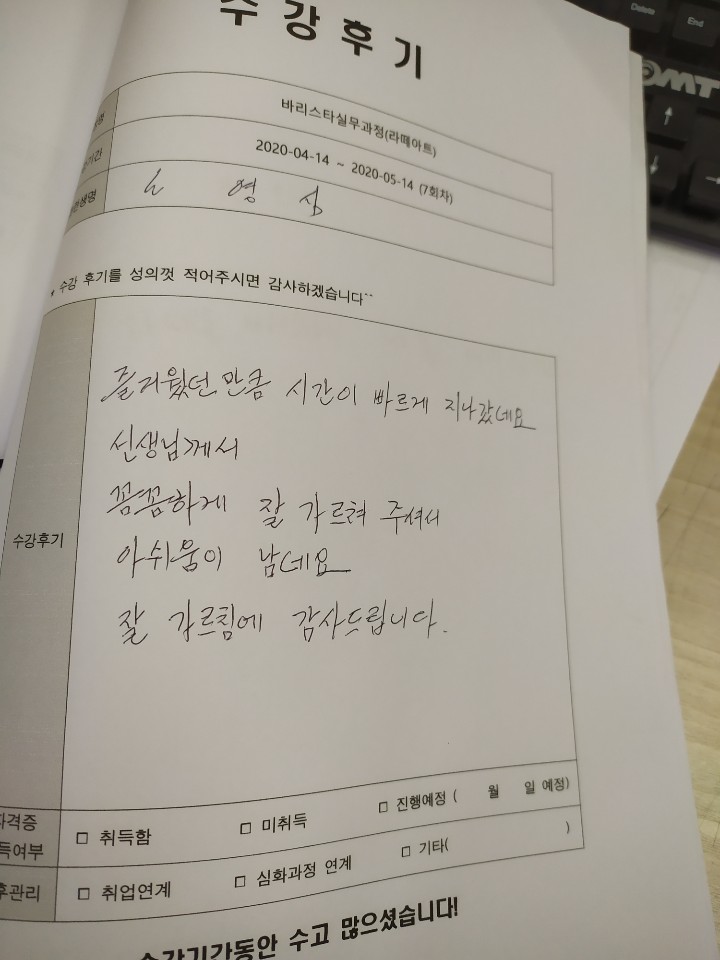 수강후기
바리스타실무과정(라떼아트)
기간 2020-04-14 ~ 2020-05-14 (7회차)
영
수강 후기를 성의껏 적어주시면 감사하겠습니다^^
즐거웠던 만큼 시간이 빠르게 지나갔네요
선생님께서
꼼꼼하게 잘 가르쳐 주셔서
수강후기
아쉬움이 남네요
잘 가르침에 감사드립니다.
자격증
득여부
□ 취득함 □ 미취득 □ 진행예정 ( 월 일 예정)
후관리 □ 취업연계 □ 심화과정 연계 □ 기타( )
수강기간동안 수고 많으셨습니다!
Delete
End